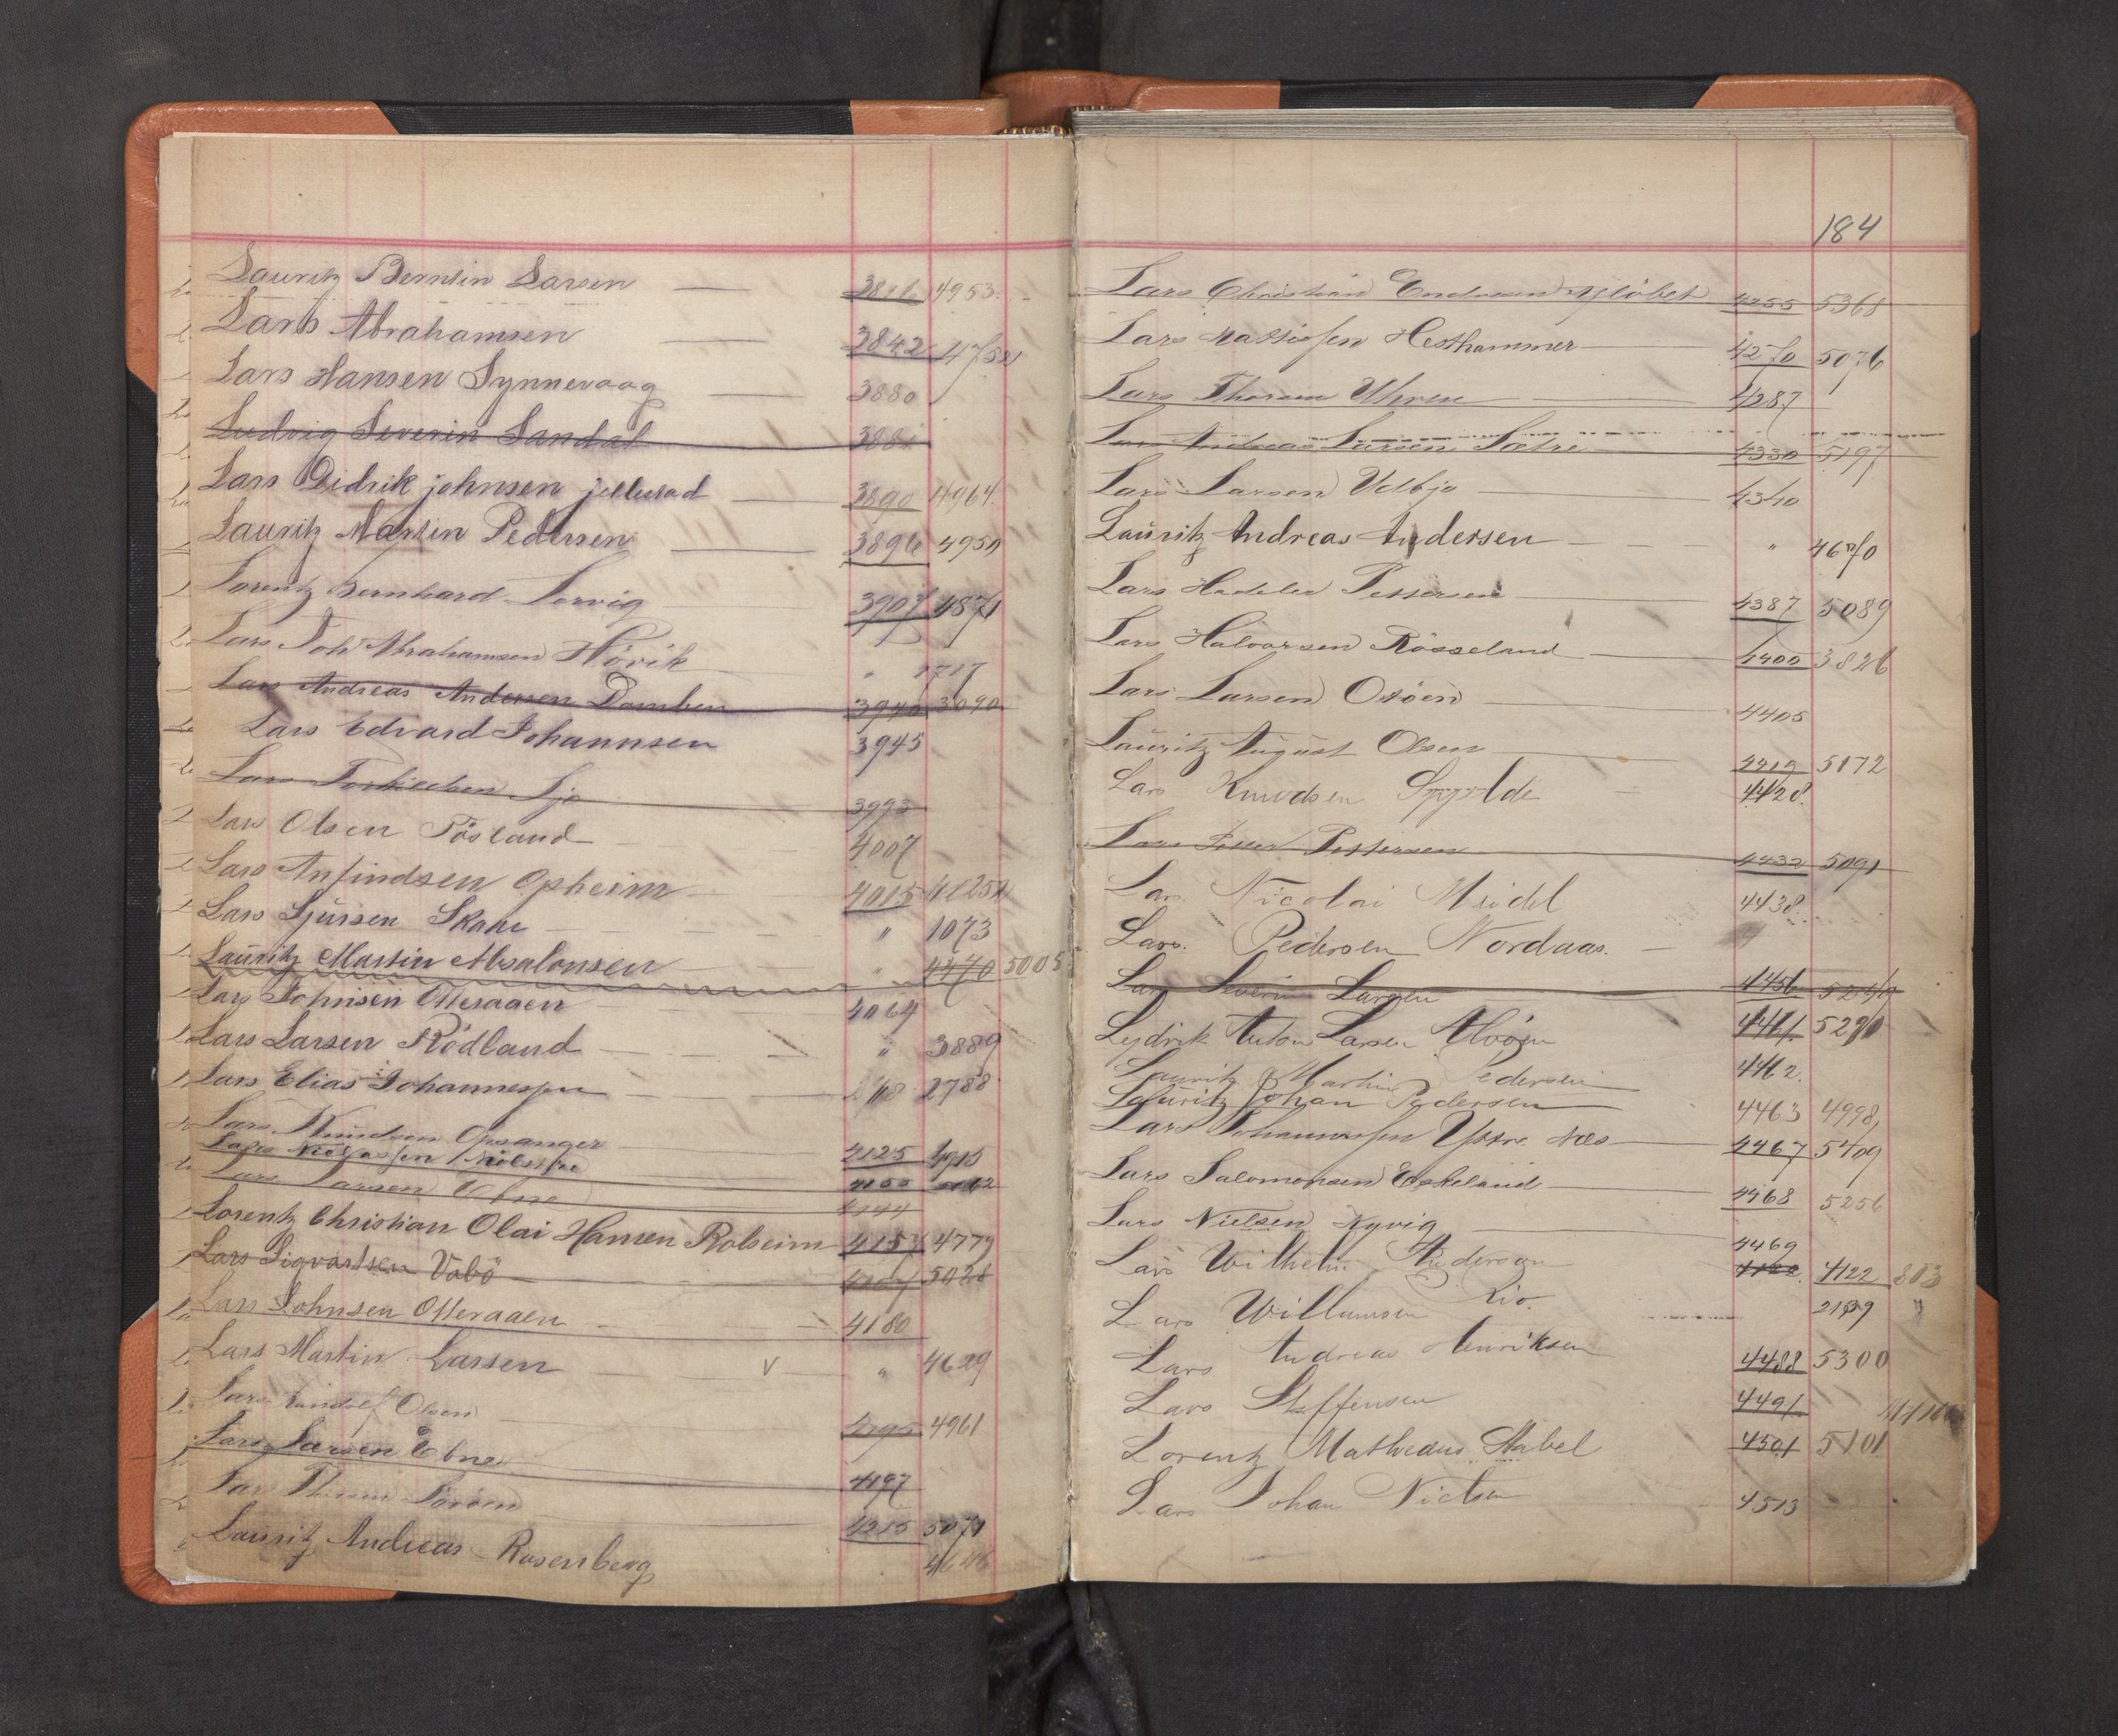 Lauritz Berntin Larsen 4953
Lars Abrahamsen 3842
Lars Hansen Synnevaag 3880
Ludvig Severin Sandal
Lars Didrik johnsen 3890 4964
Lauritz Martin Pedersen 3896 4950
Lorentz Bernhard 3907 4871
Lars Joh Abrahamsen Hövik " 1717
Lars Andreas Andersen Damben 3940 3090
Lars Edvard Johannsen 3945
Lars 3993
Lars Olsen 4007
Lars Anfindsen Opheim 4015
Lars Sjursen Skare " 1073
Lauritz Martin Absalonsen " 4470 5005
Lars Johnsen Otteraaen 4064
Lars Larsen Rödland " 3889
Lars Elias Johannessen 2788
Lars Knudsen Opsanger 4125 4915
Lars
Lars Larsen Ebne 4144
Lorentz Christian Olai Hansen Rolseim 4779
Lars Sigvartsen Vabö 5028
Lars Johnsen Otteraaen 4180
Lars Martin Larsen v " 4629
Lars Olsen 4961
Lars Larsen Ebne 4197
Lars 4215 5071
Lauritz Andreas Rosenberg
184
Lars Christian 4255 5368
Lars Mattiassen Hesthammer 4270 5076
Lars Thorsen Uhren 4287
Lars Andreas Larsen Sætre 4330 5197
Lars Larsen 4340
Lauritz Andreas Andersen " 4670
Lars Pettersen 4387 5089
Lars Halvorsen Rösseland 4400 3826
Lars Larsen Osöen 4405
Lauritz August Olsen 4419 5172
Lars Knudsen 4428
Lars Pettersen 4432 5091
Lars Nicolai Meidel 4438
Lars Pedersen Nordaas
Lars Severin Larsen 4456
Lydrik Anton Larsen Alvöen 4461
Lauritz Martin Pedersen 4462
Lauritz Johan Pedersen 4463 4998
Lars Johannessen Yttre Næs 4467 5409
Lars Salomonsen Eskeland 4468 5256
Lars Nielsen Kyvig 4469
Lars Wilhelm 4122 803
Lars Willumsen Rio "
Lars Andreas Henriksen 4488 5300
Lars Steffensen 4491
Lorentz Mathæus Stabel 4501 5101
Lars Johan Nielsen 4513